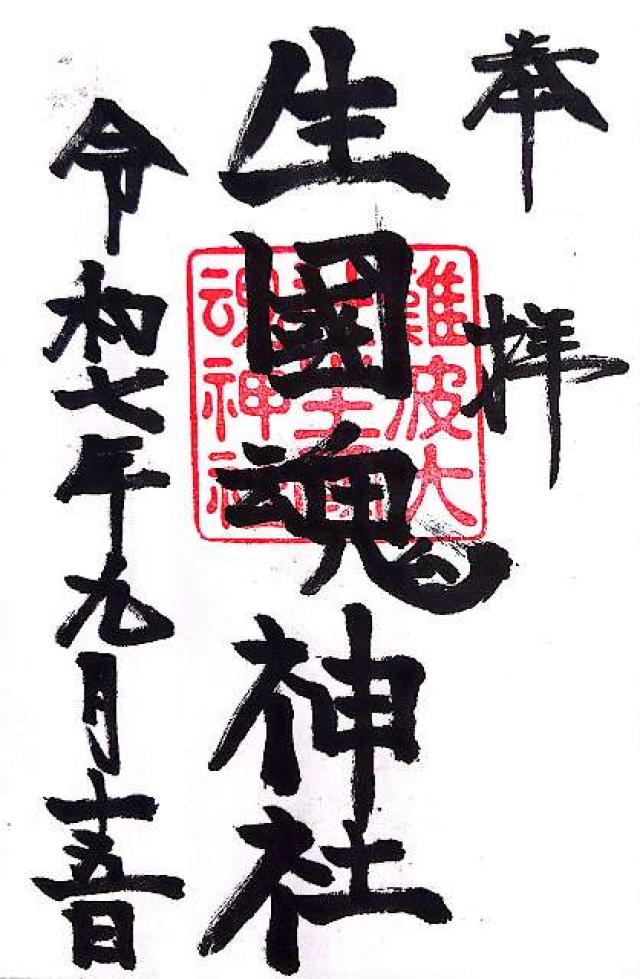 奉拝
生國魂神社
難波大
社生國
魂神社
令和七年九月十五日